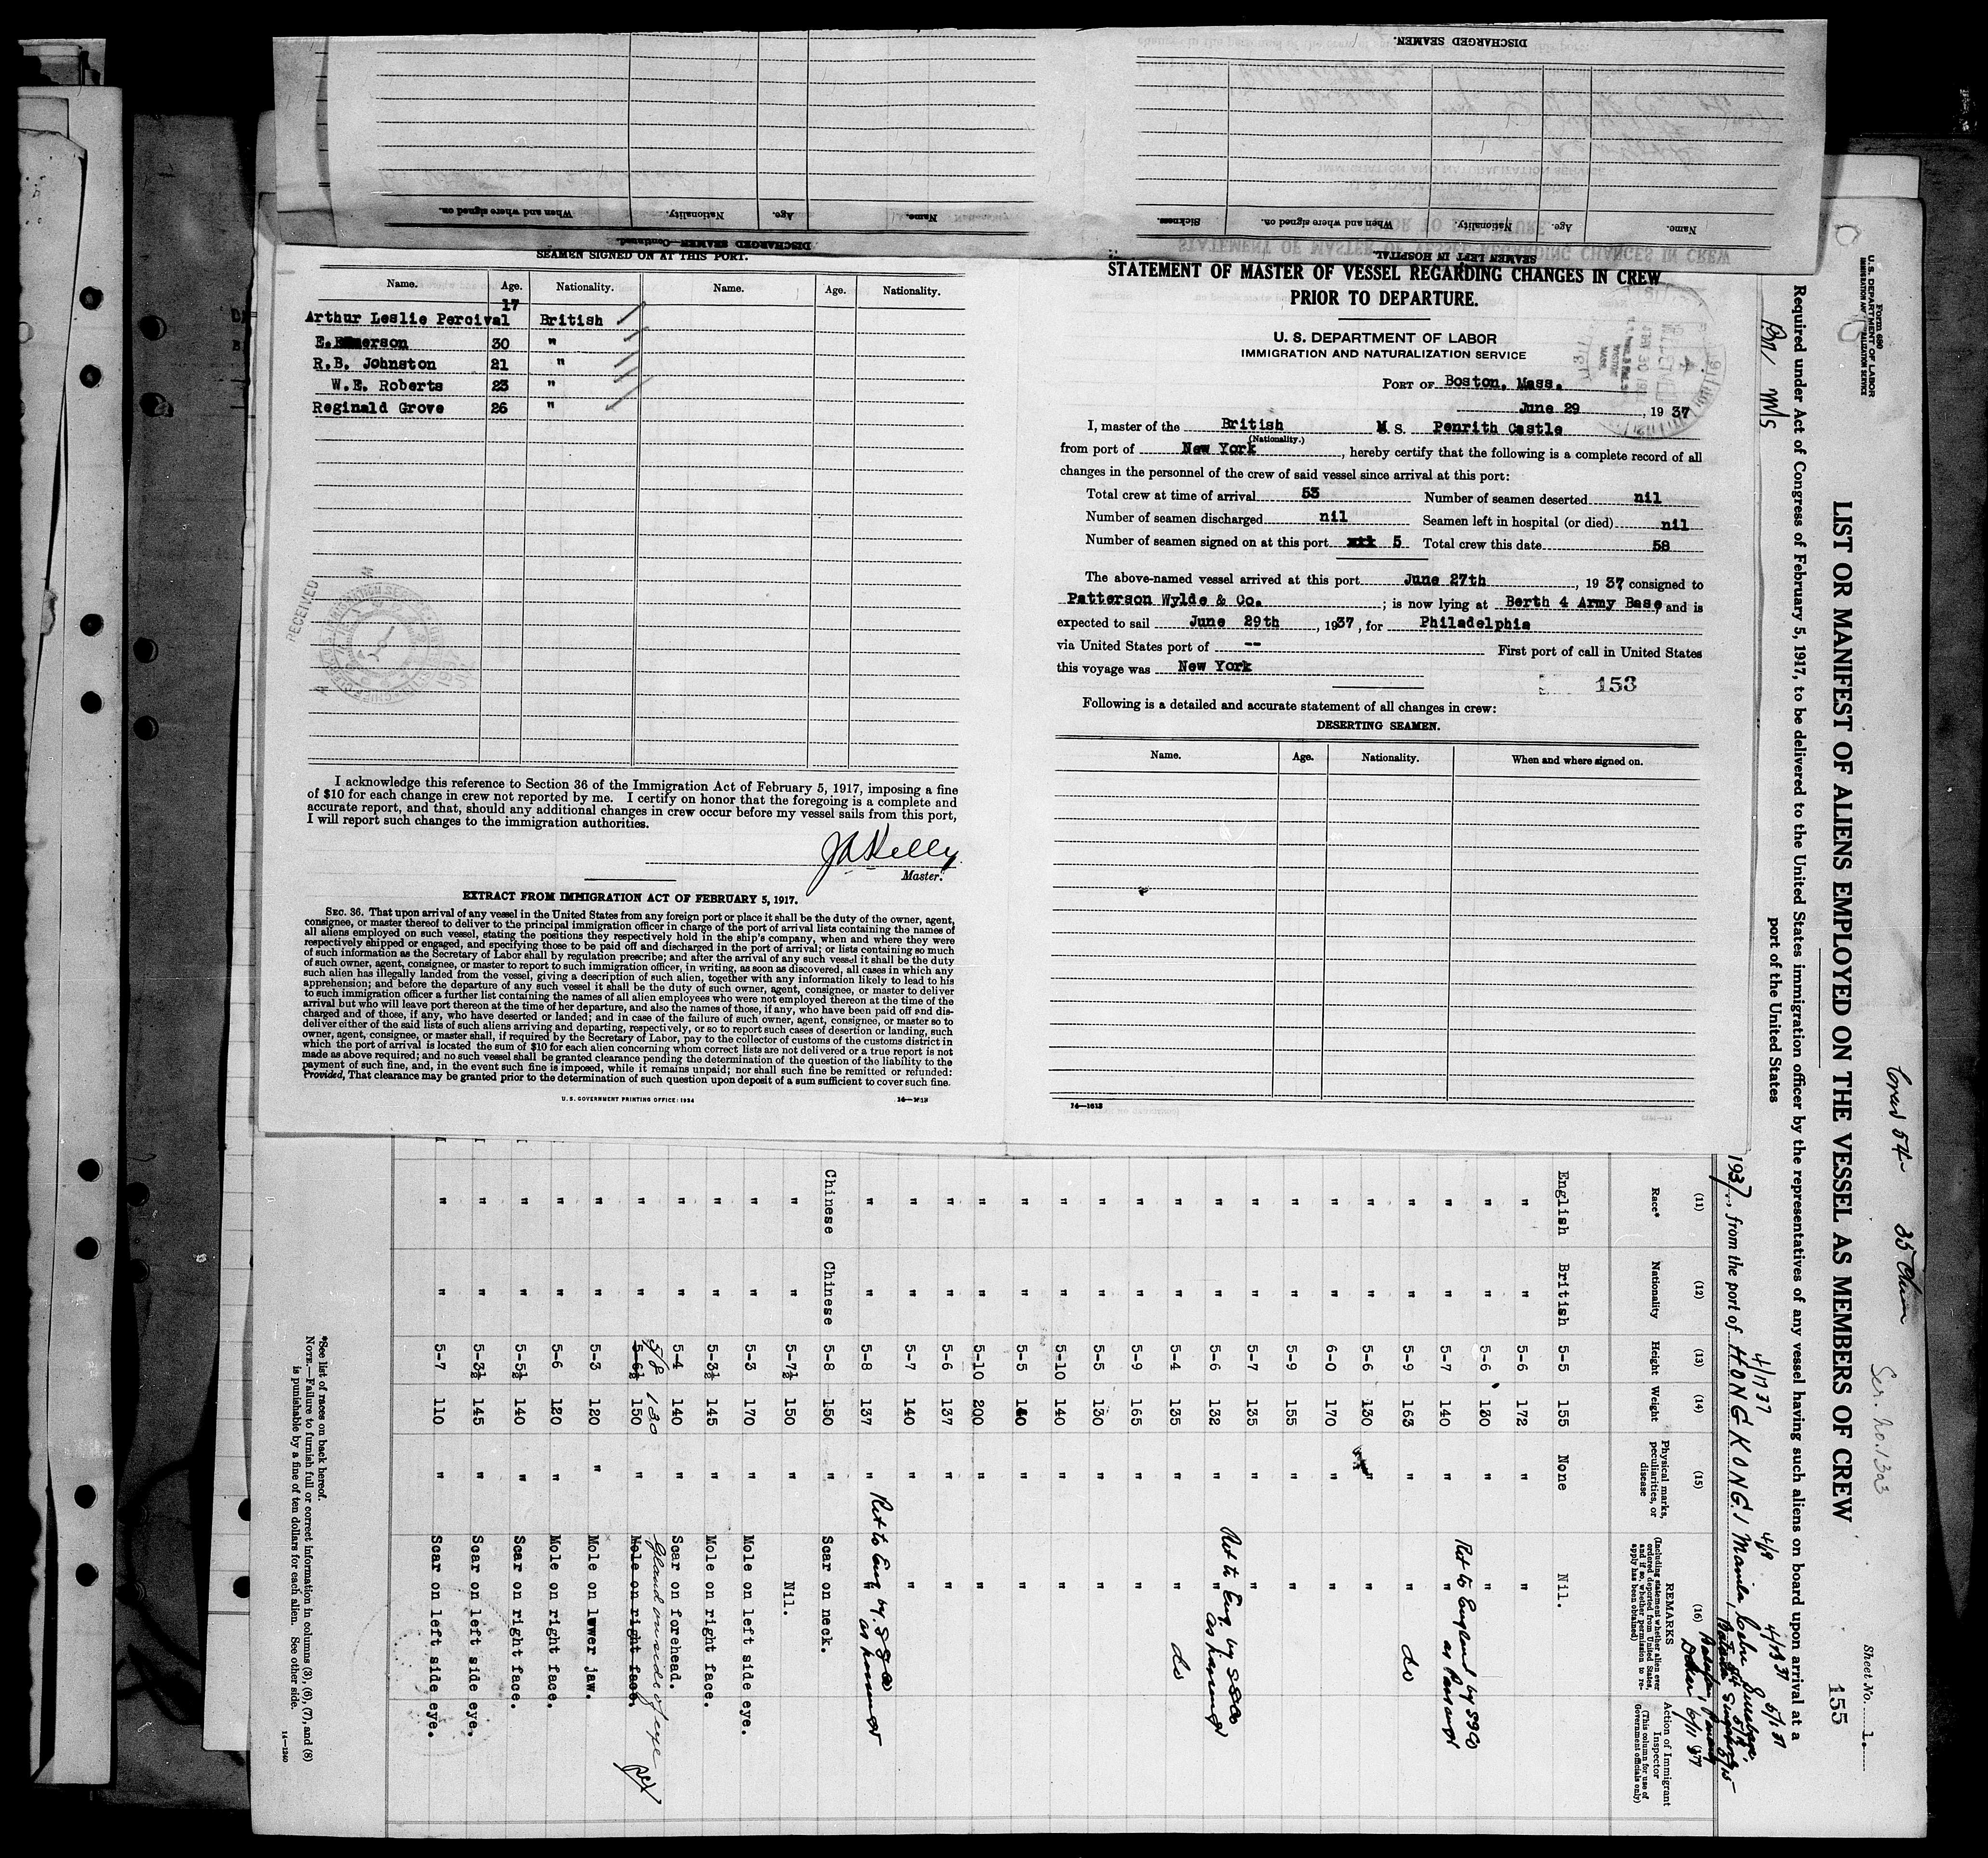 DISCHARGED SEAMEN.
When and where signed on.
Nationality.
Age.
Name.
Sickness.
When and where signed on.
Nationality.
Age.
Name.
DISCHARGED SEAMEN—Continued.
SEAMEN LEFT IN HOSPITAL.
SEAMEN SIGNED ON AT THIS PORT.
Name. Age. Nationality. Name. Age. Nationality.
17
Arthur Leslie Percival British
30 "
R.B. Johnston 21 "
W.E. Roberts 23 "
Reginald Grove 26 "
RECEIVED
I acknowledge this reference to Section 36 of the Immigration Act of February 5, 1917, imposing a fine
of $10 for each change in crew not reported by me. I certify on honor that the foregoing is a complete and
accurate report, and that, should any additional changes in crew occur before my vessel sails from this port,
I will report such changes to the immigration authorities.
JA Kelly
Master.
EXTRACT FROM IMMIGRATION ACT OF FEBRUARY 5, 1917.
SEC. 36. That upon arrival of any vessel in the United States from any foreign port or place it shall be the duty of the owner, agent,
consignee, or master thereof to deliver to the principal immigration officer in charge of the port of arrival lists containing the names of
all aliens employed on such vessel, stating the positions they respectively hold in the ship's company, when and where they were
respectively shipped or engaged, and specifying those to be paid off and discharged in the port of arrival; or lists containing so much
of such information as the Secretary of Labor shall by regulation prescribe; and after the arrival of any such vessel it shall be the duty
of such owner, agent, consignee, or master to report to such immigration officer, in writing, as soon as discovered, all cases in which any
such alien has illegally landed from the vessel, giving a description of such alien, together with any information likely to lead to his
apprehension; and before the departure of any such vessel it shall be the duty of such owner, agent, consignee, or master to deliver
to such immigration officer a further list containing the names of all alien employees who were not employed thereon at the time of the
arrival but who will leave port thereon at the time of her departure, and also the names of those, if any, who have been paid off and dis-
charged and of those, if any, who have deserted or landed; and in case of the failure of such owner, agent, consignee, or master so to
deliver either of the said lists of such aliens arriving and departing, respectively, or so to report such cases of desertion or landing, such
owner, agent, consignee, or master shall, if required by the Secretary of Labor, pay to the collector of customs of the customs district in
which the port of arrival is located the sum of $10 for each alien concerning whom correct lists are not delivered or a true report is not
made as above required; and no such vessel shall be granted clearance pending the determination of the question of the liability to the
payment of such fine, and, in the event such fine is imposed, while it remains unpaid; nor shall such fine be remitted or refunded:
Provided, That clearance may be granted prior to the determination of such question upon deposit of a sum sufficient to cover such fine.
U.S. GOVERNMENT PRINTING OFFICE: 1934 14—1613
STATEMENT OF MASTER OF VESSEL REGARDING CHANGES IN CREW
PRIOR TO DEPARTURE.
U. S. DEPARTMENT OF LABOR
IMMIGRATION AND NATURALIZATION SERVICE
PORT OF Boston, Mass.
June 29, 1937
I, master of the British M S. Penrith Castle
(Nationality.)
from port of New York, hereby certify that the following is a complete record of all
changes in the personnel of the crew of said vessel since arrival at this port:
Total crew at time of arrival 53 Number of seamen deserted nil
Number of seamen discharged nil Seamen left in hospital (or died) nil
Number of seamen signed on at this port 5 Total crew this date 58
The above-named vessel arrived at this port June 27th, 1937 consigned to
Patterson Wylde & Co.; is now lying at Berth 4 Army Base, and is
expected to sail June 29th, 1937, for Philadelphia
via United States port of -- First port of call in United States
this voyage was New York
153
Following is a detailed and accurate statement of all changes in crew:
DESERTING SEAMEN.
Name. Age. Nationality. When and where signed on.
14—1613
Form 680
U. S. DEPARTMENT OF LABOR
IMMIGRATION AND NATURALIZATION SERVICE
Crew 54 35 Chin
Ser. No. 1323
Sheet No. 1.
155
LIST OR MANIFEST OF ALIENS EMPLOYED ON THE VESSEL AS MEMBERS OF CREW
Required under Act of Congress of February 5, 1917, to be delivered to the United States immigration officer by the representatives of any vessel having such aliens on board upon arrival at a
port of the United States
1937, from the port of HONG KONG, Manila Cebu
4/17 37 4/9
(11) (12) (13) (14) (15) (16)
Race* Nationality Height Weight Physical marks, peculiarities, or disease REMARKS (Including statement whether alien ever ordered deported from United States, and if so, whether permission to re-apply has been obtained) Action of Immigrant Inspector (This column for use of Government officials only)
English British 5-5 155 None Nil.
" " 5-6 172 " "
" " 5-6 130 " "
" " 5-7 140 " " Ret to England by SS Co as Passenger
" " 5-9 163 " do
" " 5-6 130 "
" " 6-0 170 " "
" " 5-9 155 " "
" " 5-7 135 " "
" " 5-6 132 " " Ret to Eng. by SS Co as Passenger
" " 5-4 135 " " do
" " 5-9 165 " "
" " 5-5 130 " "
" " 5-10 140 " "
" " 5-5 140 " "
" " 5-10 200 " "
" " 5-6 137 " "
" " 5-7 140 " "
" " 5-8 137 " " Ret to Eng by SS Co as Passenger
Chinese Chinese 5-8 150 " Scar on neck.
" " 5-7½ 150 " Nil.
" " 5-3 170 " Mole on left side eye.
" " 5-3½ 145 " Mole on right face.
" " 5-4 140 " Scar on forehead.
5/8 130 Gland on side of eye
" " 5-6½ 150 " Mole on right face.
" " 5-3 120 " Mole on lower jaw.
" " 5-6 120 " Mole on right face.
" " 5-5½ 140 " Scar on right face.
" " 5-3½ 145 " Scar on left side eye.
" " 5-7 110 " Scar on left side eye.
*See list of races on back hereof.
NOTE.—Failure to furnish full or correct information in columns (3), (6), (7), and (8)
is punishable by a fine of ten dollars for each alien. See other side.
14—1240